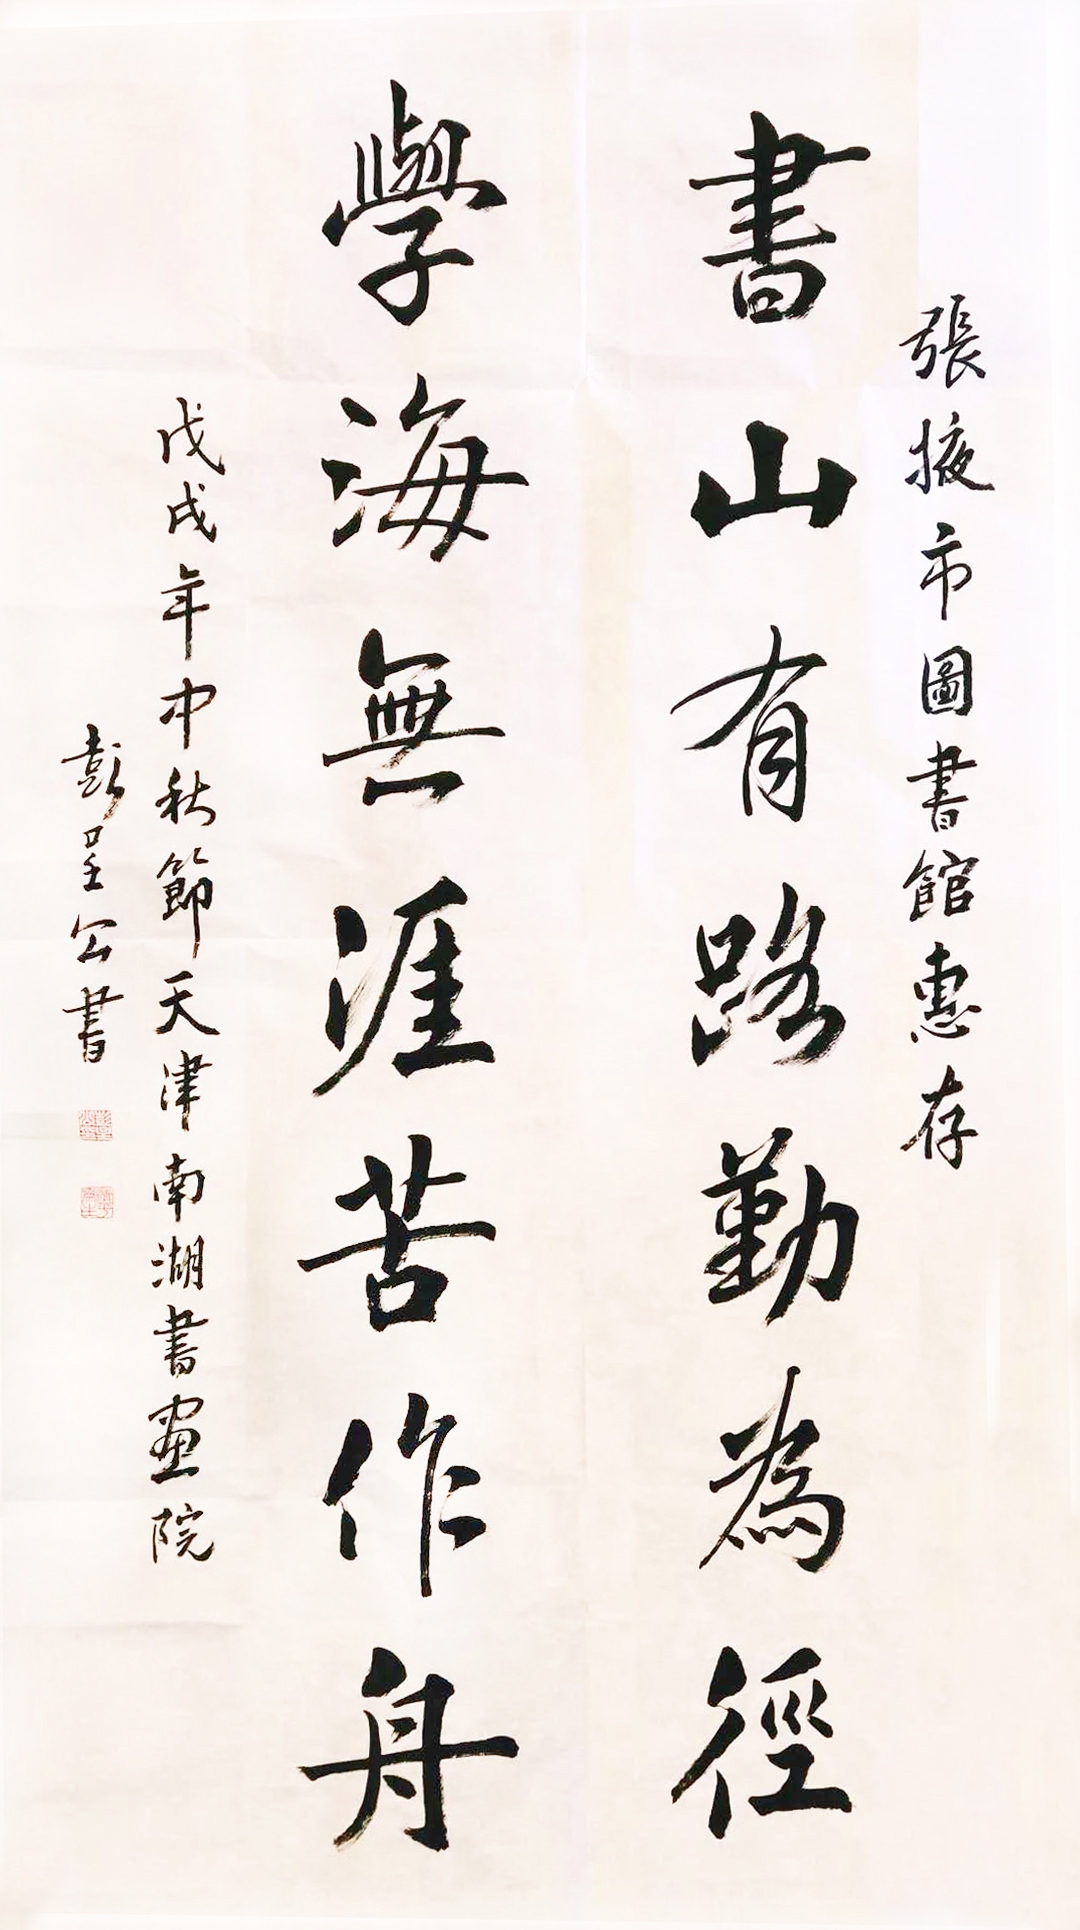 張掖市圖書館惠存
書山有路勤為徑
學海無涯苦作舟
戊戌年中秋節天津南湖書画院
彭呈公書